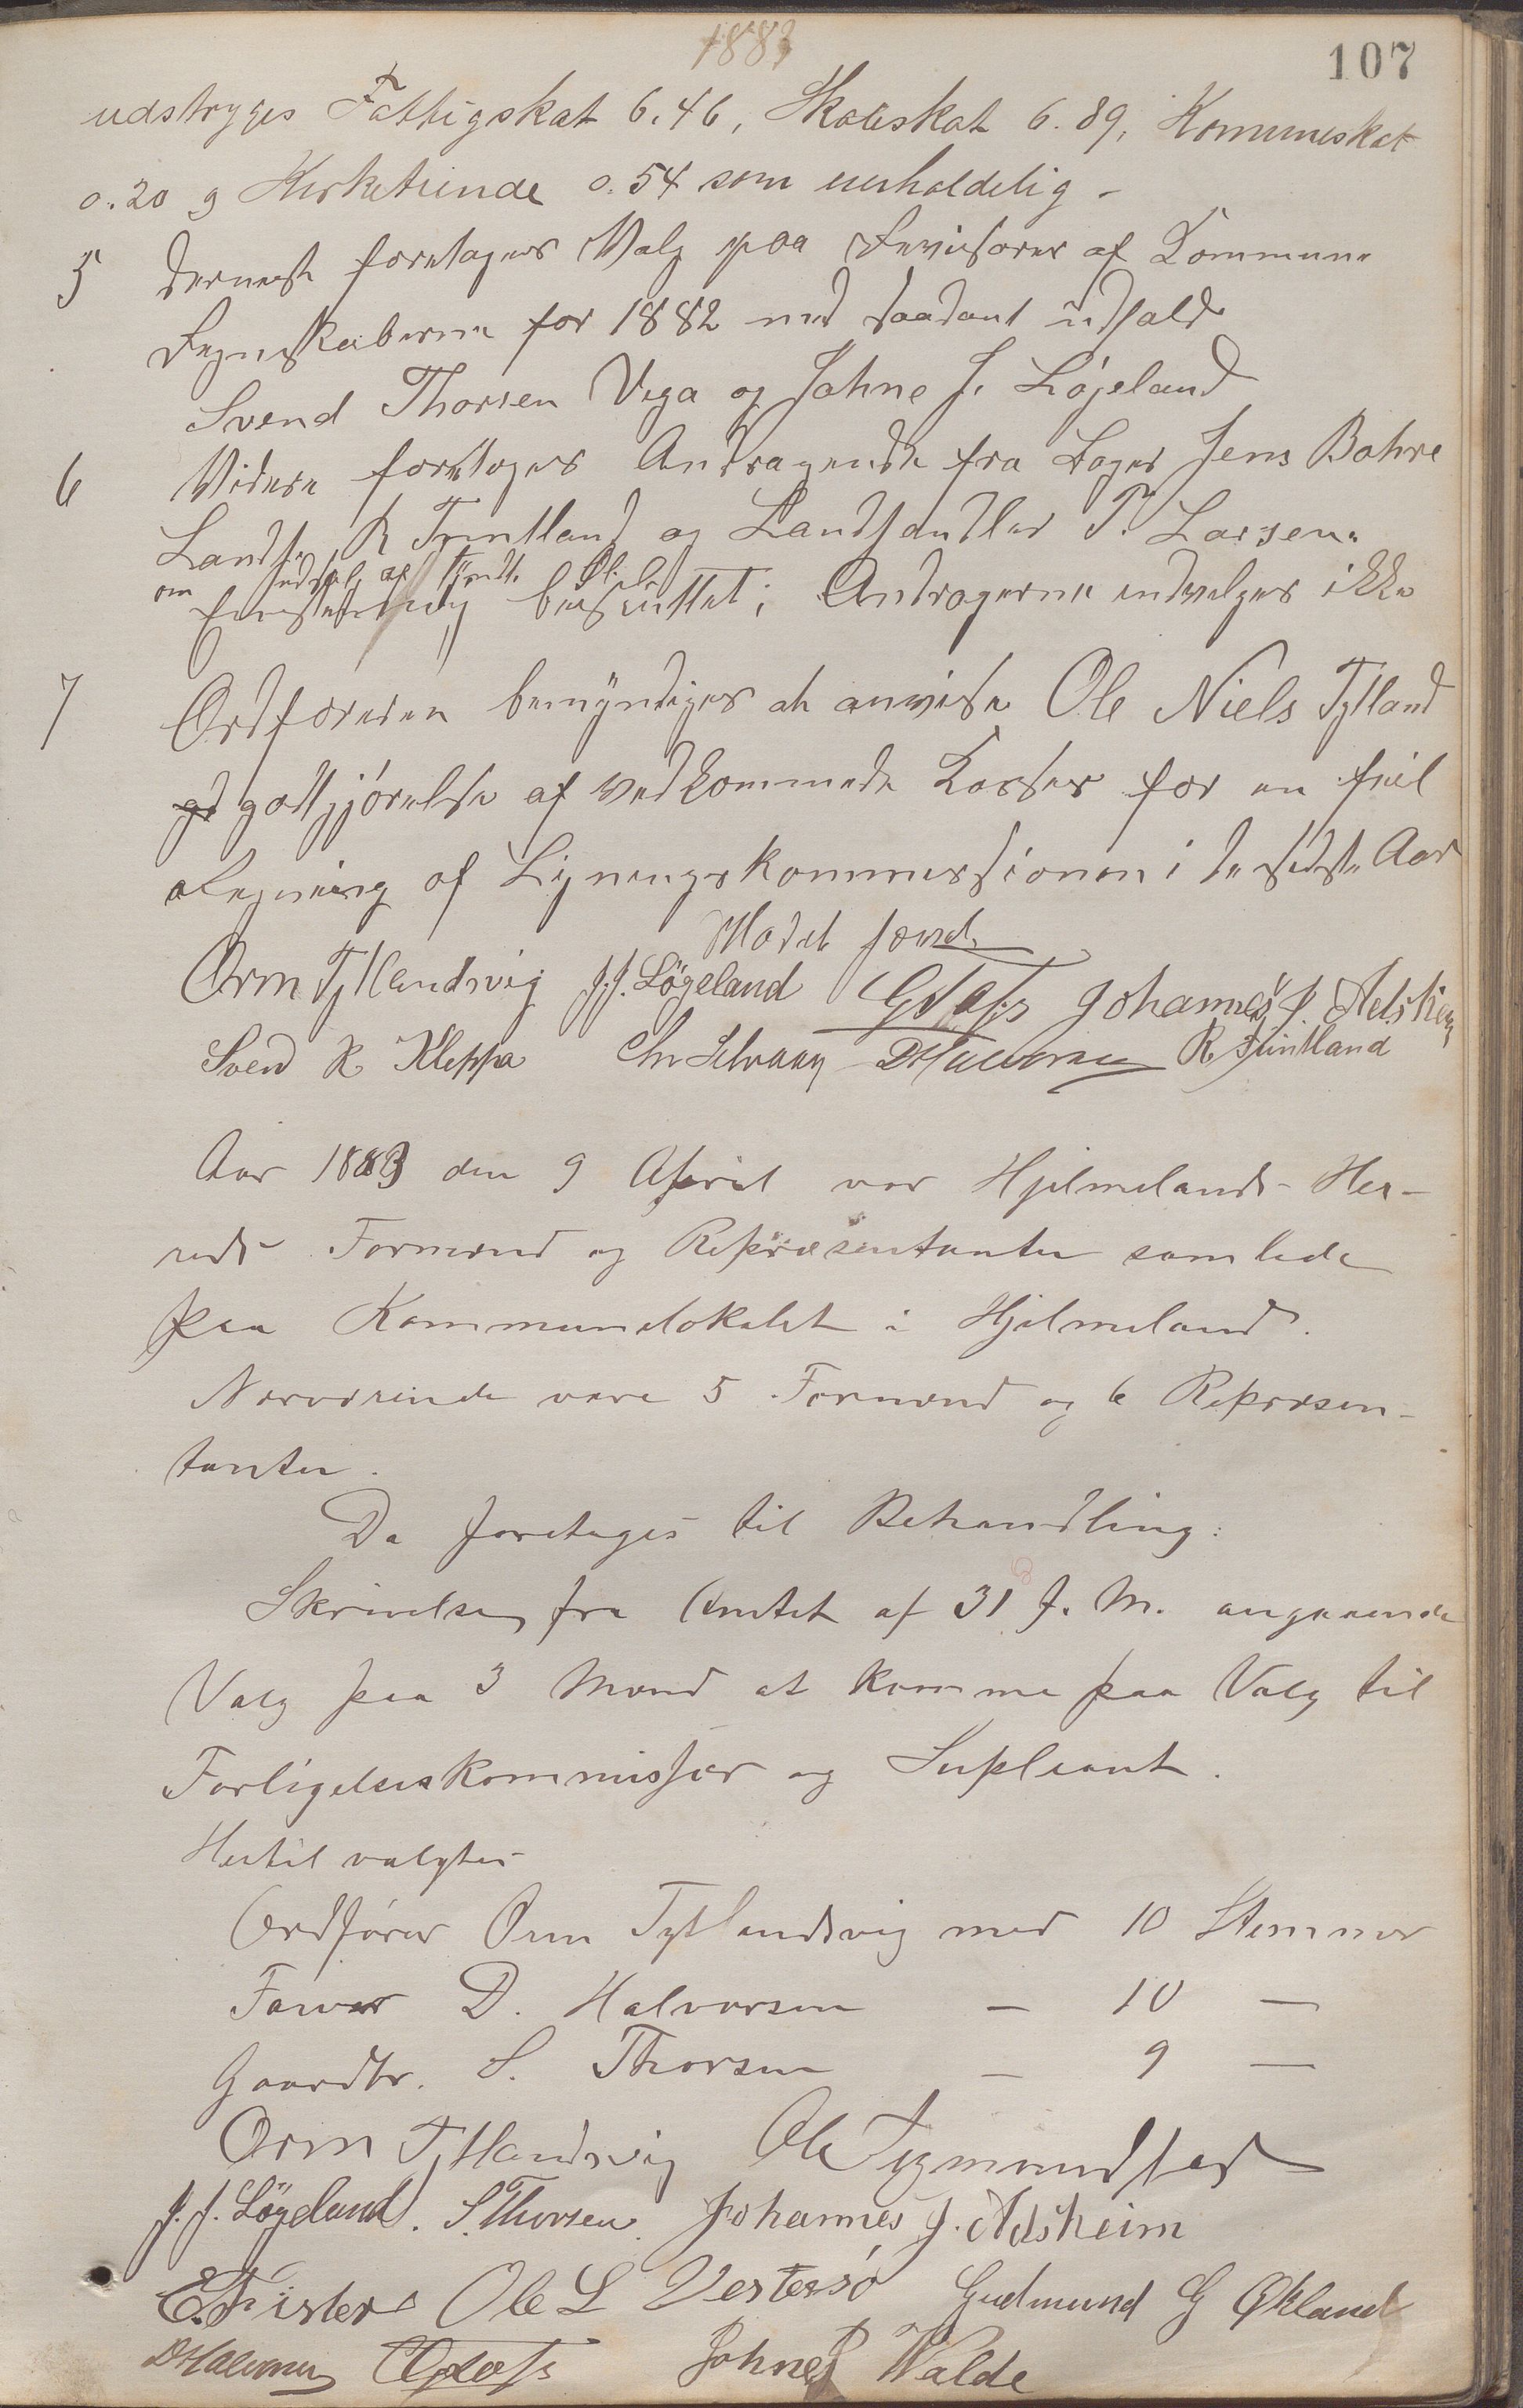 1883
107
udstryges Fattigskat 6.46, Skoleskat 6.89, Kommuneskat
0.20 g Kirketiende 0.54 som uerholdelig -
5 dernæst foretages Valg paa Revisorer af Kommune
Regnskaberne for 1882 med saadant Udfald
Svend Thorsen Vega og Johne J. Løgeland
6 Videre foretoges Andragende fra Bager Jens Bahre
Landh. R Funtland og Landhandler T. Larsen.
om Udsalg af
besluttet; Andragerne ikke
7 Ordføreren bemyndiges at anvise Ole Niels Tytland
gd godtgjørelse af vedkommende Kasser for en feil
Ligningskommissionen i de sidste Aar
Mødet hævet
Orm Tytlandsvig J.J. Løgeland Johannes J. Adsheim
Sven R Kleppa DHalvorsen R Funtland
Aar 1883 den 9 April var Hjelmelands Her-
reds Formænd og Repræsentanter samlede
paa Kommunelokalet i Hjelmeland.
Nærværende vare 5 Formænd og 6 Repræsen-
tanter.
Da foretages til Behandling:
Skrivelse fra Amtet af 31 f. M. angaaende
Valg paa 3 Mænd at komme paa Valg til
Forligelseskommissær og Supleant.
Hertil valgtes
Ordfører Orm Tytlandsvig med 10 Stemmer
Farver D. Halvorsen — 10 —
Gaardbr. S. Thorsen — 9 —
Orm Tytlandsvig Ole Sigmundstad
J. J. Løgeland. S. Thorsen. Johannes J. Adsheim
E. Fister Ole L Vestersø Gudmund G Økland
DHalvorsen Johne Walde